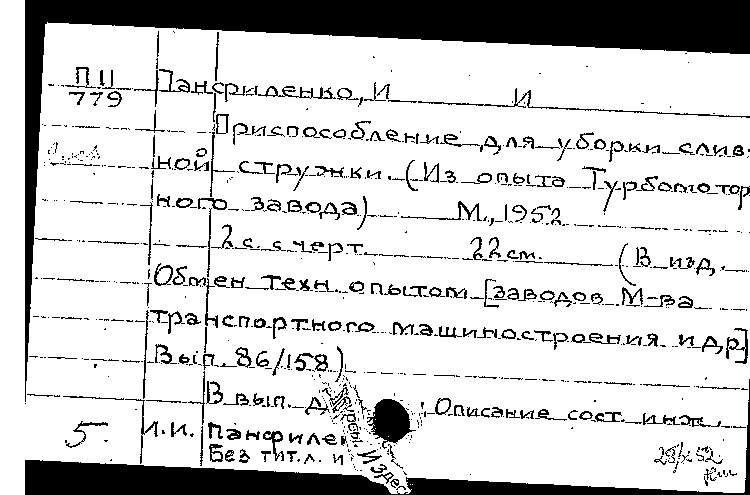 П11
779
Панфиленко, И И
Приспособление для уборки слив-
ной стружки. (Из опыта Турбомотор
ного завода) М., 1952
2 с. с черт. 22 см. (В изд.
Обмен техн. опытом [заводов М-ва
транспортного машиностроения и др]
Вып. 86/158)
В вып. : Описание сост. инж.
5. И.И. Панфилен
Без тит. л. и
28/X 52